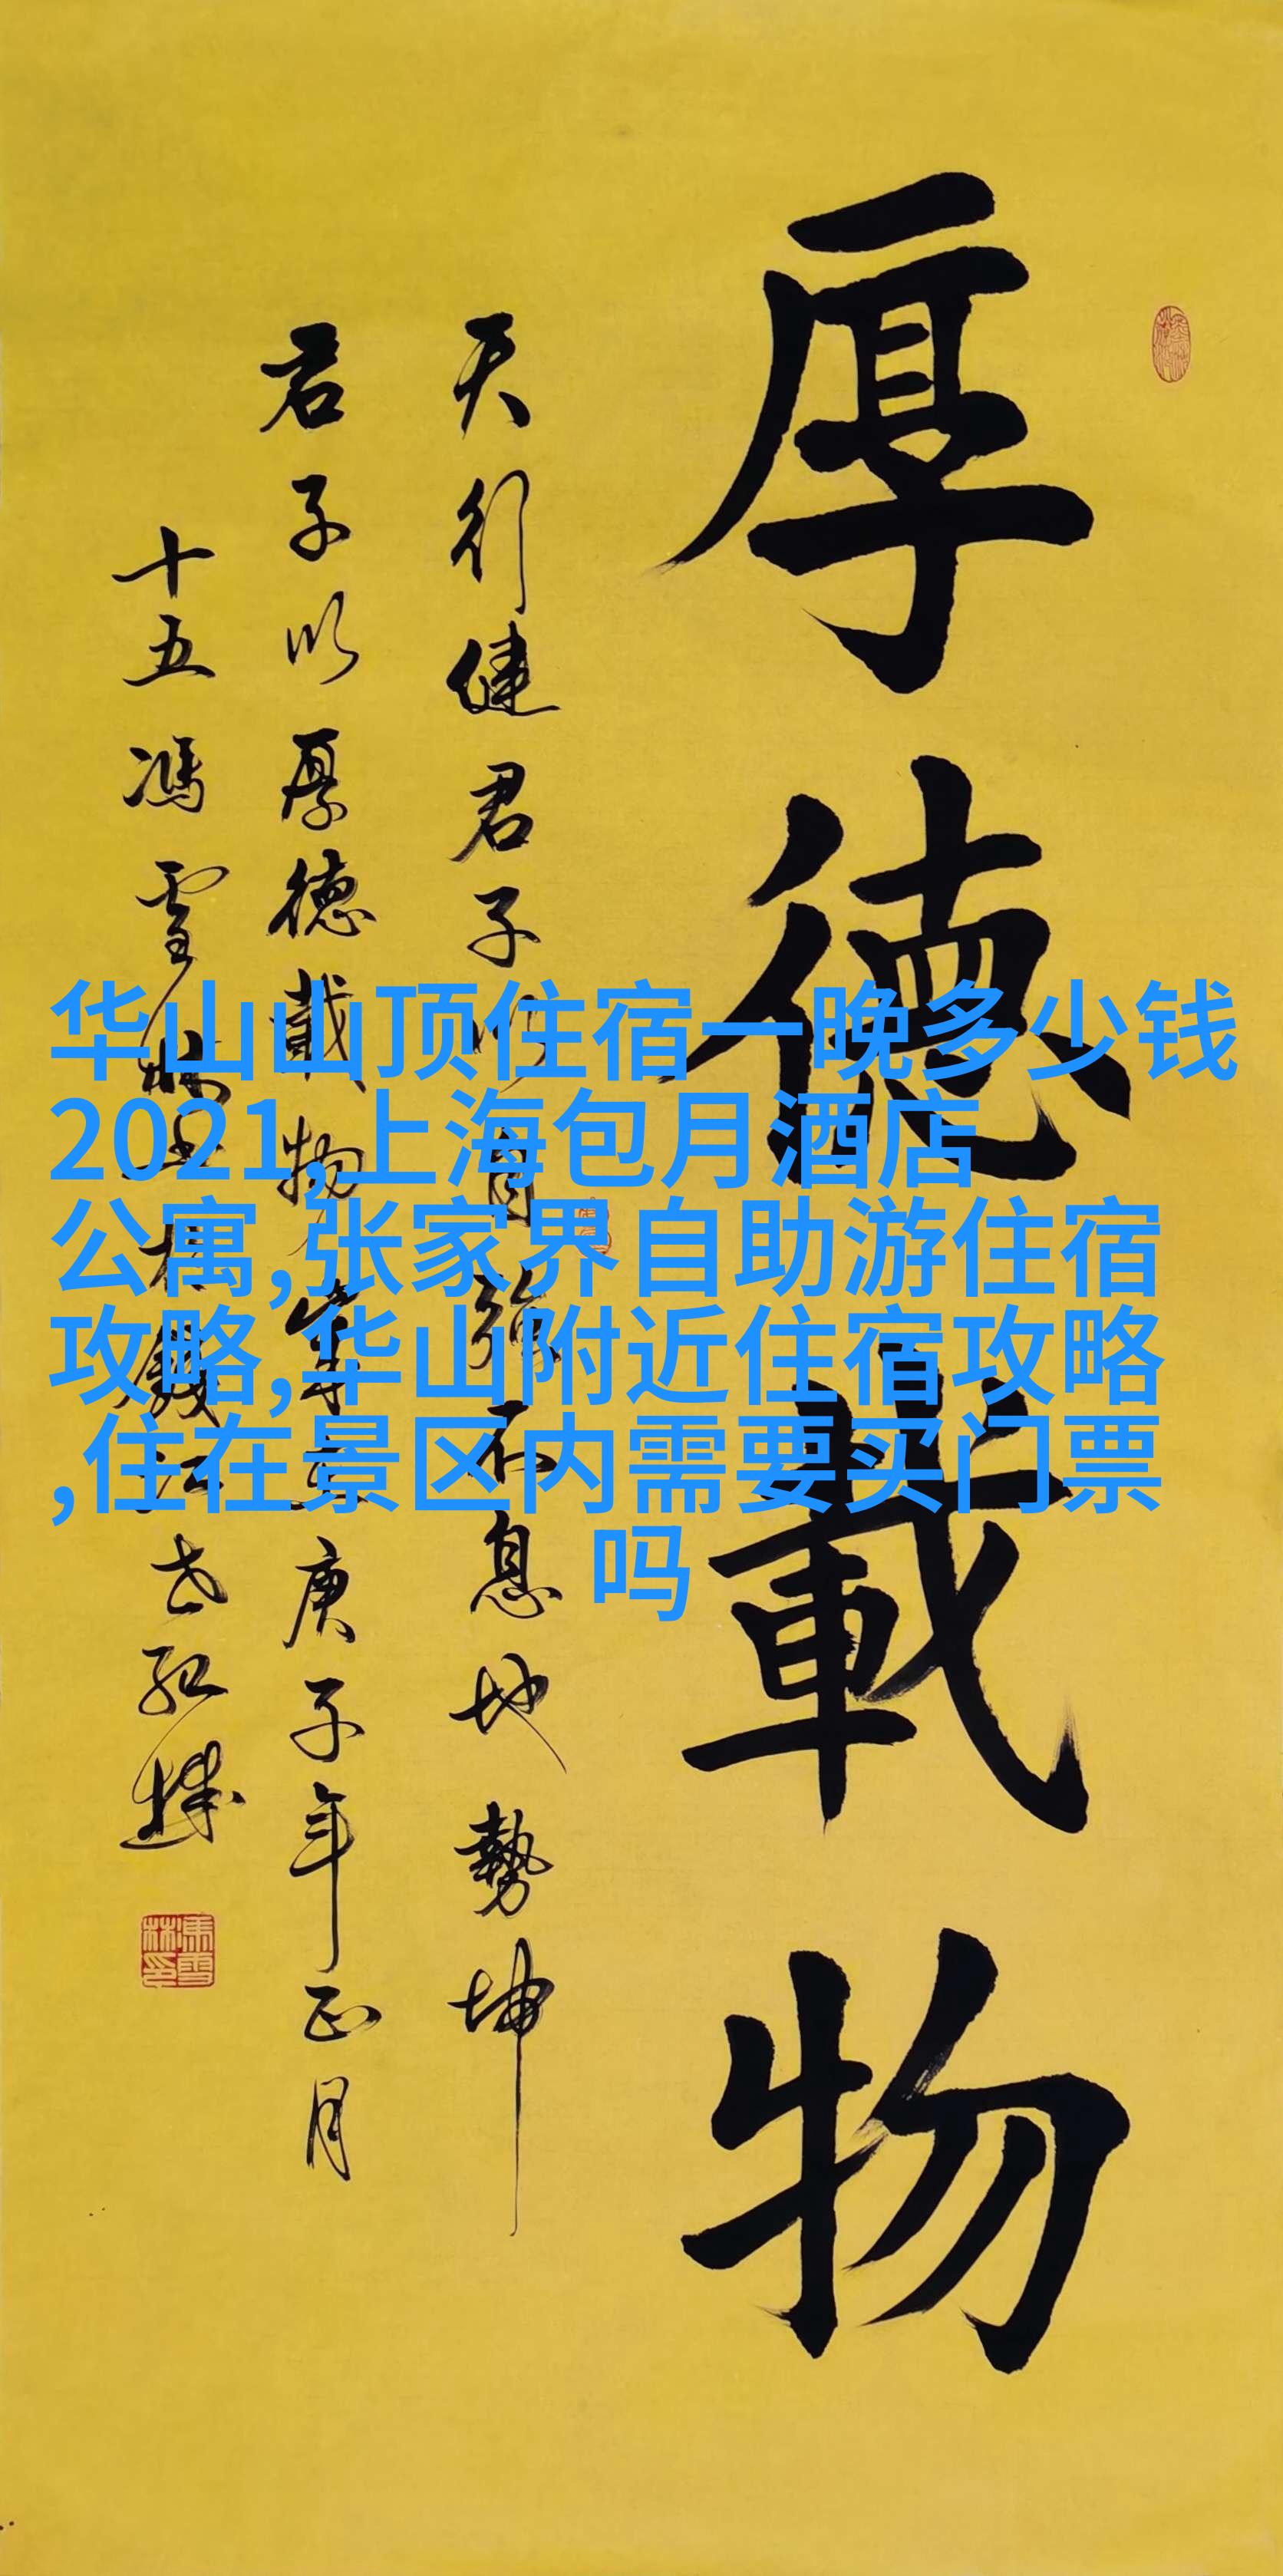 厚德載物
天行健君子以自强不息地勢坤
君子以厚德載物 庚子年正月
十五馮雪林
华山山顶住宿一晚多少钱
2021,上海包月酒店
公寓,张家界自助游住宿
攻略,华山附近住宿攻略
,住在景区内需要买门票
吗
馮雪林印